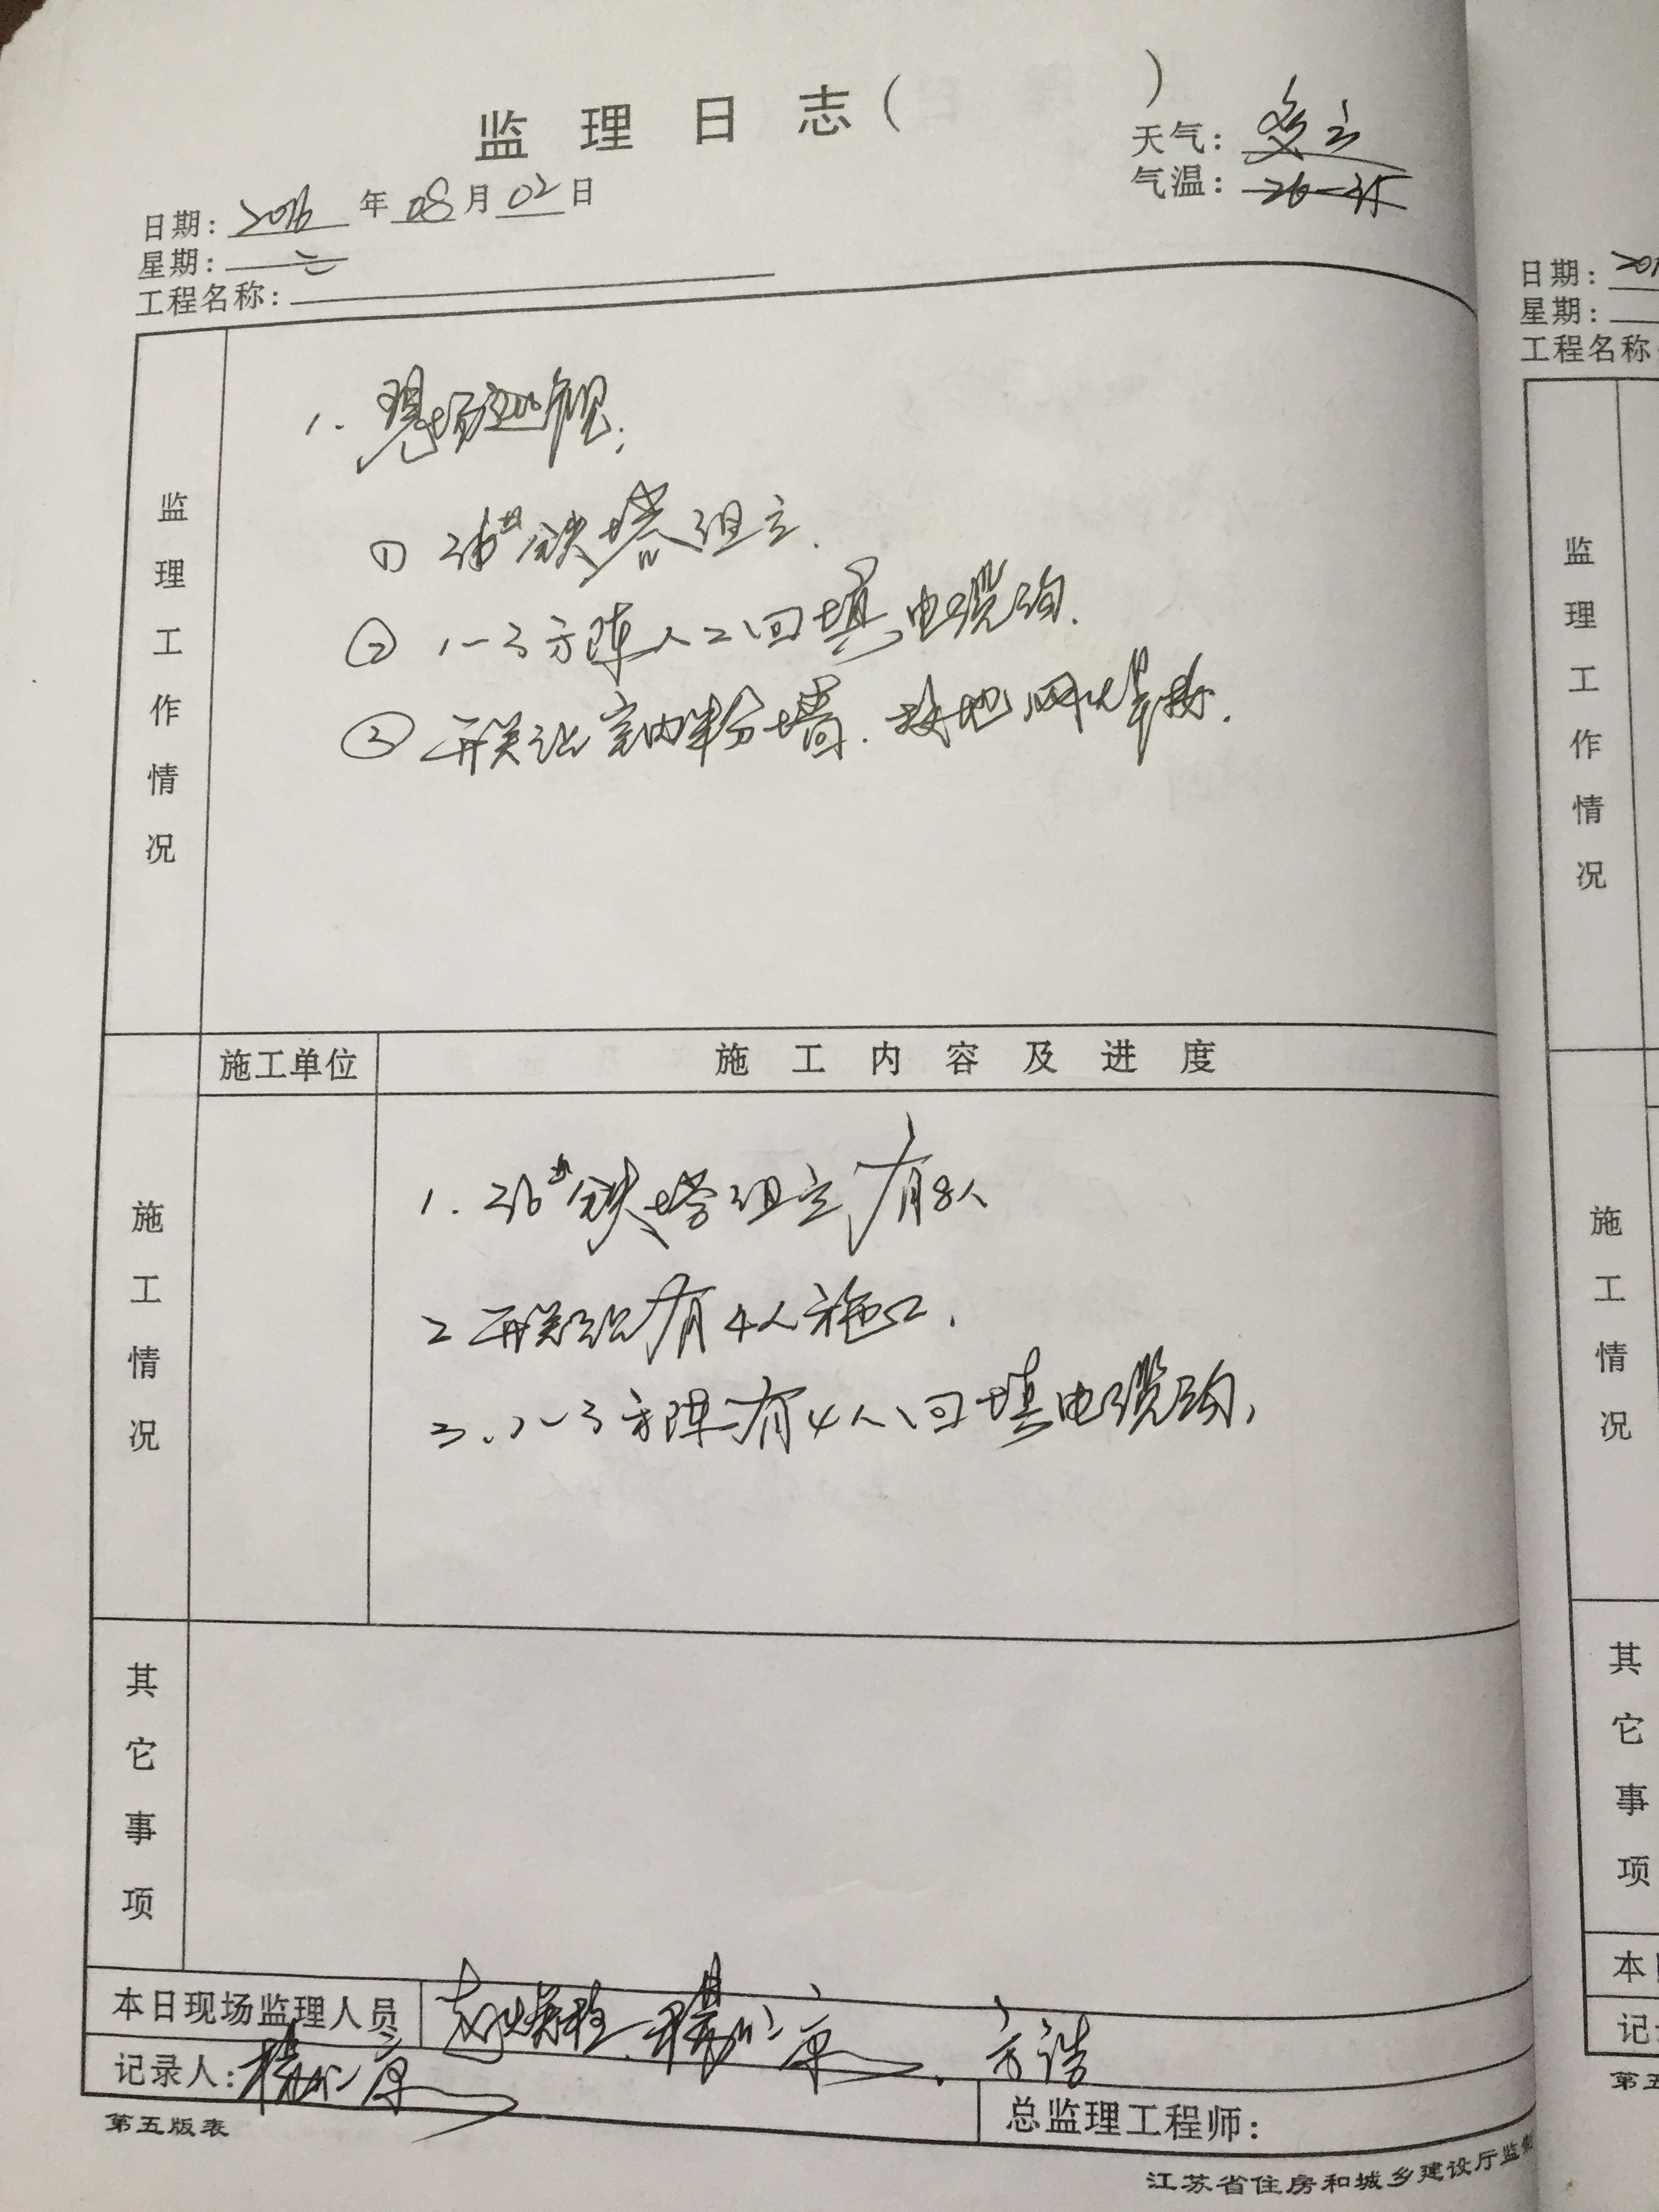 监理日志（ ）
天气：多云
气温：26-35
日期：2016年08月02日
星期：二
工程名称：
监理工作情况
1. 现场巡视；
① 26#铁塔组立.
② 1-3方阵人工回填电缆沟.
③ 开关站室内粉墙. 接地网焊接.
施工情况
施工单位
施工内容及进度
1. 26#铁塔组立有8人
2 开关站有4人施工.
3、1-3方阵有4人回填电缆沟,
其它事项
本日现场监理人员
方浩
记录人：
总监理工程师：
第五版表
江苏省住房和城乡建设厅监
日期：201
星期：
工程名称
监理工作情况
施工情况
其它事项
本
记
第五